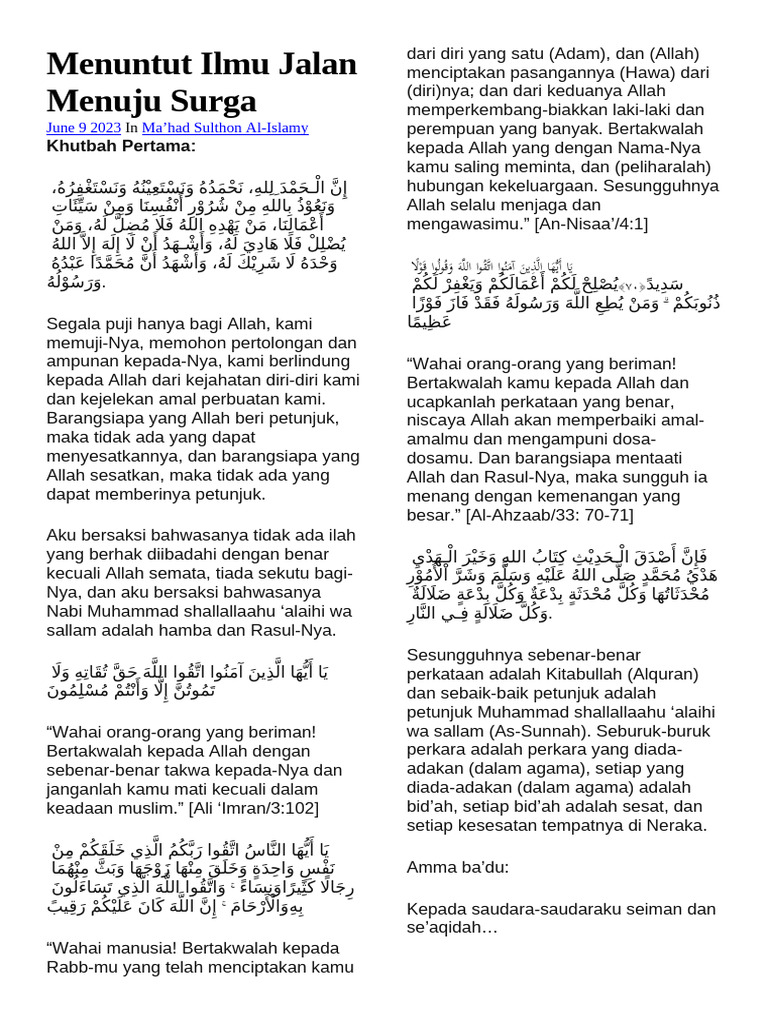 Menuntut Ilmu Jalan
Menuju Surga
June 9 2023 In Ma’had Sulthon Al-Islamy
Khutbah Pertama:
إِنَّ الْـحَمْدَ لِلهِ، نَحْمَدُهُ وَنَسْتَعِيْنُهُ وَنَسْتَغْفِرُهُ،
وَنَعُوْذُ بِاللهِ مِنْ شُرُوْرِ أَنْفُسِنَا وَمِنْ سَيِّئَاتِ
أَعْمَالِنَا، مَنْ يَهْدِهِ اللهُ فَلَا مُضِلَّ لَهُ، وَمَنْ
يُضْلِلْ فَلَا هَادِيَ لَهُ، وَأَشْـهَدُ أَنْ لَا إِلَهَ إِلاَّ اللهُ
وَحْدَهُ لَا شَرِيْكَ لَهُ، وَأَشْهَدُ أَنَّ مُحَمَّدًا عَبْدُهُ
وَرَسُوْلُهُ.
Segala puji hanya bagi Allah, kami
memuji-Nya, memohon pertolongan dan
ampunan kepada-Nya, kami berlindung
kepada Allah dari kejahatan diri-diri kami
dan kejelekan amal perbuatan kami.
Barangsiapa yang Allah beri petunjuk,
maka tidak ada yang dapat
menyesatkannya, dan barangsiapa yang
Allah sesatkan, maka tidak ada yang
dapat memberinya petunjuk.
Aku bersaksi bahwasanya tidak ada ilah
yang berhak diibadahi dengan benar
kecuali Allah semata, tiada sekutu bagi-
Nya, dan aku bersaksi bahwasanya
Nabi Muhammad shallallaahu ‘alaihi wa
sallam adalah hamba dan Rasul-Nya.
يَا أَيُّهَا الَّذِينَ آمَنُوا اتَّقُوا اللَّهَ حَقَّ تُقَاتِهِ وَلَا
تَمُوتُنَّ إِلَّا وَأَنْتُمْ مُسْلِمُونَ
“Wahai orang-orang yang beriman!
Bertakwalah kepada Allah dengan
sebenar-benar takwa kepada-Nya dan
janganlah kamu mati kecuali dalam
keadaan muslim.” [Ali ‘Imran/3:102]
يَا أَيُّهَا النَّاسُ اتَّقُوا رَبَّكُمُ الَّذِي خَلَقَكُمْ مِنْ
نَفْسٍ وَاحِدَةٍ وَخَلَقَ مِنْهَا زَوْجَهَا وَبَثَّ مِنْهُمَا
رِجَالًا كَثِيرًاوَنِسَاءً ۚ وَاتَّقُوا اللَّهَ الَّذِي تَسَاءَلُونَ
بِهِوَالْأَرْحَامَ ۚ إِنَّ اللَّهَ كَانَ عَلَيْكُمْ رَقِيبً
“Wahai manusia! Bertakwalah kepada
Rabb-mu yang telah menciptakan kamu
dari diri yang satu (Adam), dan (Allah)
menciptakan pasangannya (Hawa) dari
(diri)nya; dan dari keduanya Allah
memperkembang-biakkan laki-laki dan
perempuan yang banyak. Bertakwalah
kepada Allah yang dengan Nama-Nya
kamu saling meminta, dan (peliharalah)
hubungan kekeluargaan. Sesungguhnya
Allah selalu menjaga dan
mengawasimu.” [An-Nisaa’/4:1]
يَا أَيُّهَا الَّذِينَ آمَنُوا اتَّقُوا اللَّهَ وَقُولُوا قَوْلًا
سَدِيدً﴿٧٠﴾يُصْلِحْ لَكُمْ أَعْمَالَكُمْ وَيَغْفِرْ لَكُمْ
ذُنُوبَكُمْ ۗ وَمَنْ يُطِعِ اللَّهَ وَرَسُولَهُ فَقَدْ فَازَ فَوْزًا
عَظِيمًا
“Wahai orang-orang yang beriman!
Bertakwalah kamu kepada Allah dan
ucapkanlah perkataan yang benar,
niscaya Allah akan memperbaiki amal-
amalmu dan mengampuni dosa-
dosamu. Dan barangsiapa mentaati
Allah dan Rasul-Nya, maka sungguh ia
menang dengan kemenangan yang
besar.” [Al-Ahzaab/33: 70-71]
فَإِنَّ أَصْدَقَ الْـحَدِيْثِ كِتَابُ اللهِ وَخَيْرَ الْـهَدْيِ
هَدْيُ مُحَمَّدٍ صَلَّى اللهُ عَلَيْهِ وَسَلَّمَ وَشَرَّ الْأُمُوْرِ
مُحْدَثَاتُهَا وَكُلَّ مُحْدَثَةٍ بِدْعَةٌ وَكُلَّ بِدْعَةٍ ضَلَالَةٌ
وَكُلَّ ضَلَالَةٍ فِـي النَّارِ.
Sesungguhnya sebenar-benar
perkataan adalah Kitabullah (Alquran)
dan sebaik-baik petunjuk adalah
petunjuk Muhammad shallallaahu ‘alaihi
wa sallam (As-Sunnah). Seburuk-buruk
perkara adalah perkara yang diada-
adakan (dalam agama), setiap yang
diada-adakan (dalam agama) adalah
bid’ah, setiap bid’ah adalah sesat, dan
setiap kesesatan tempatnya di Neraka.
Amma ba’du:
Kepada saudara-saudaraku seiman dan
se’aqidah…